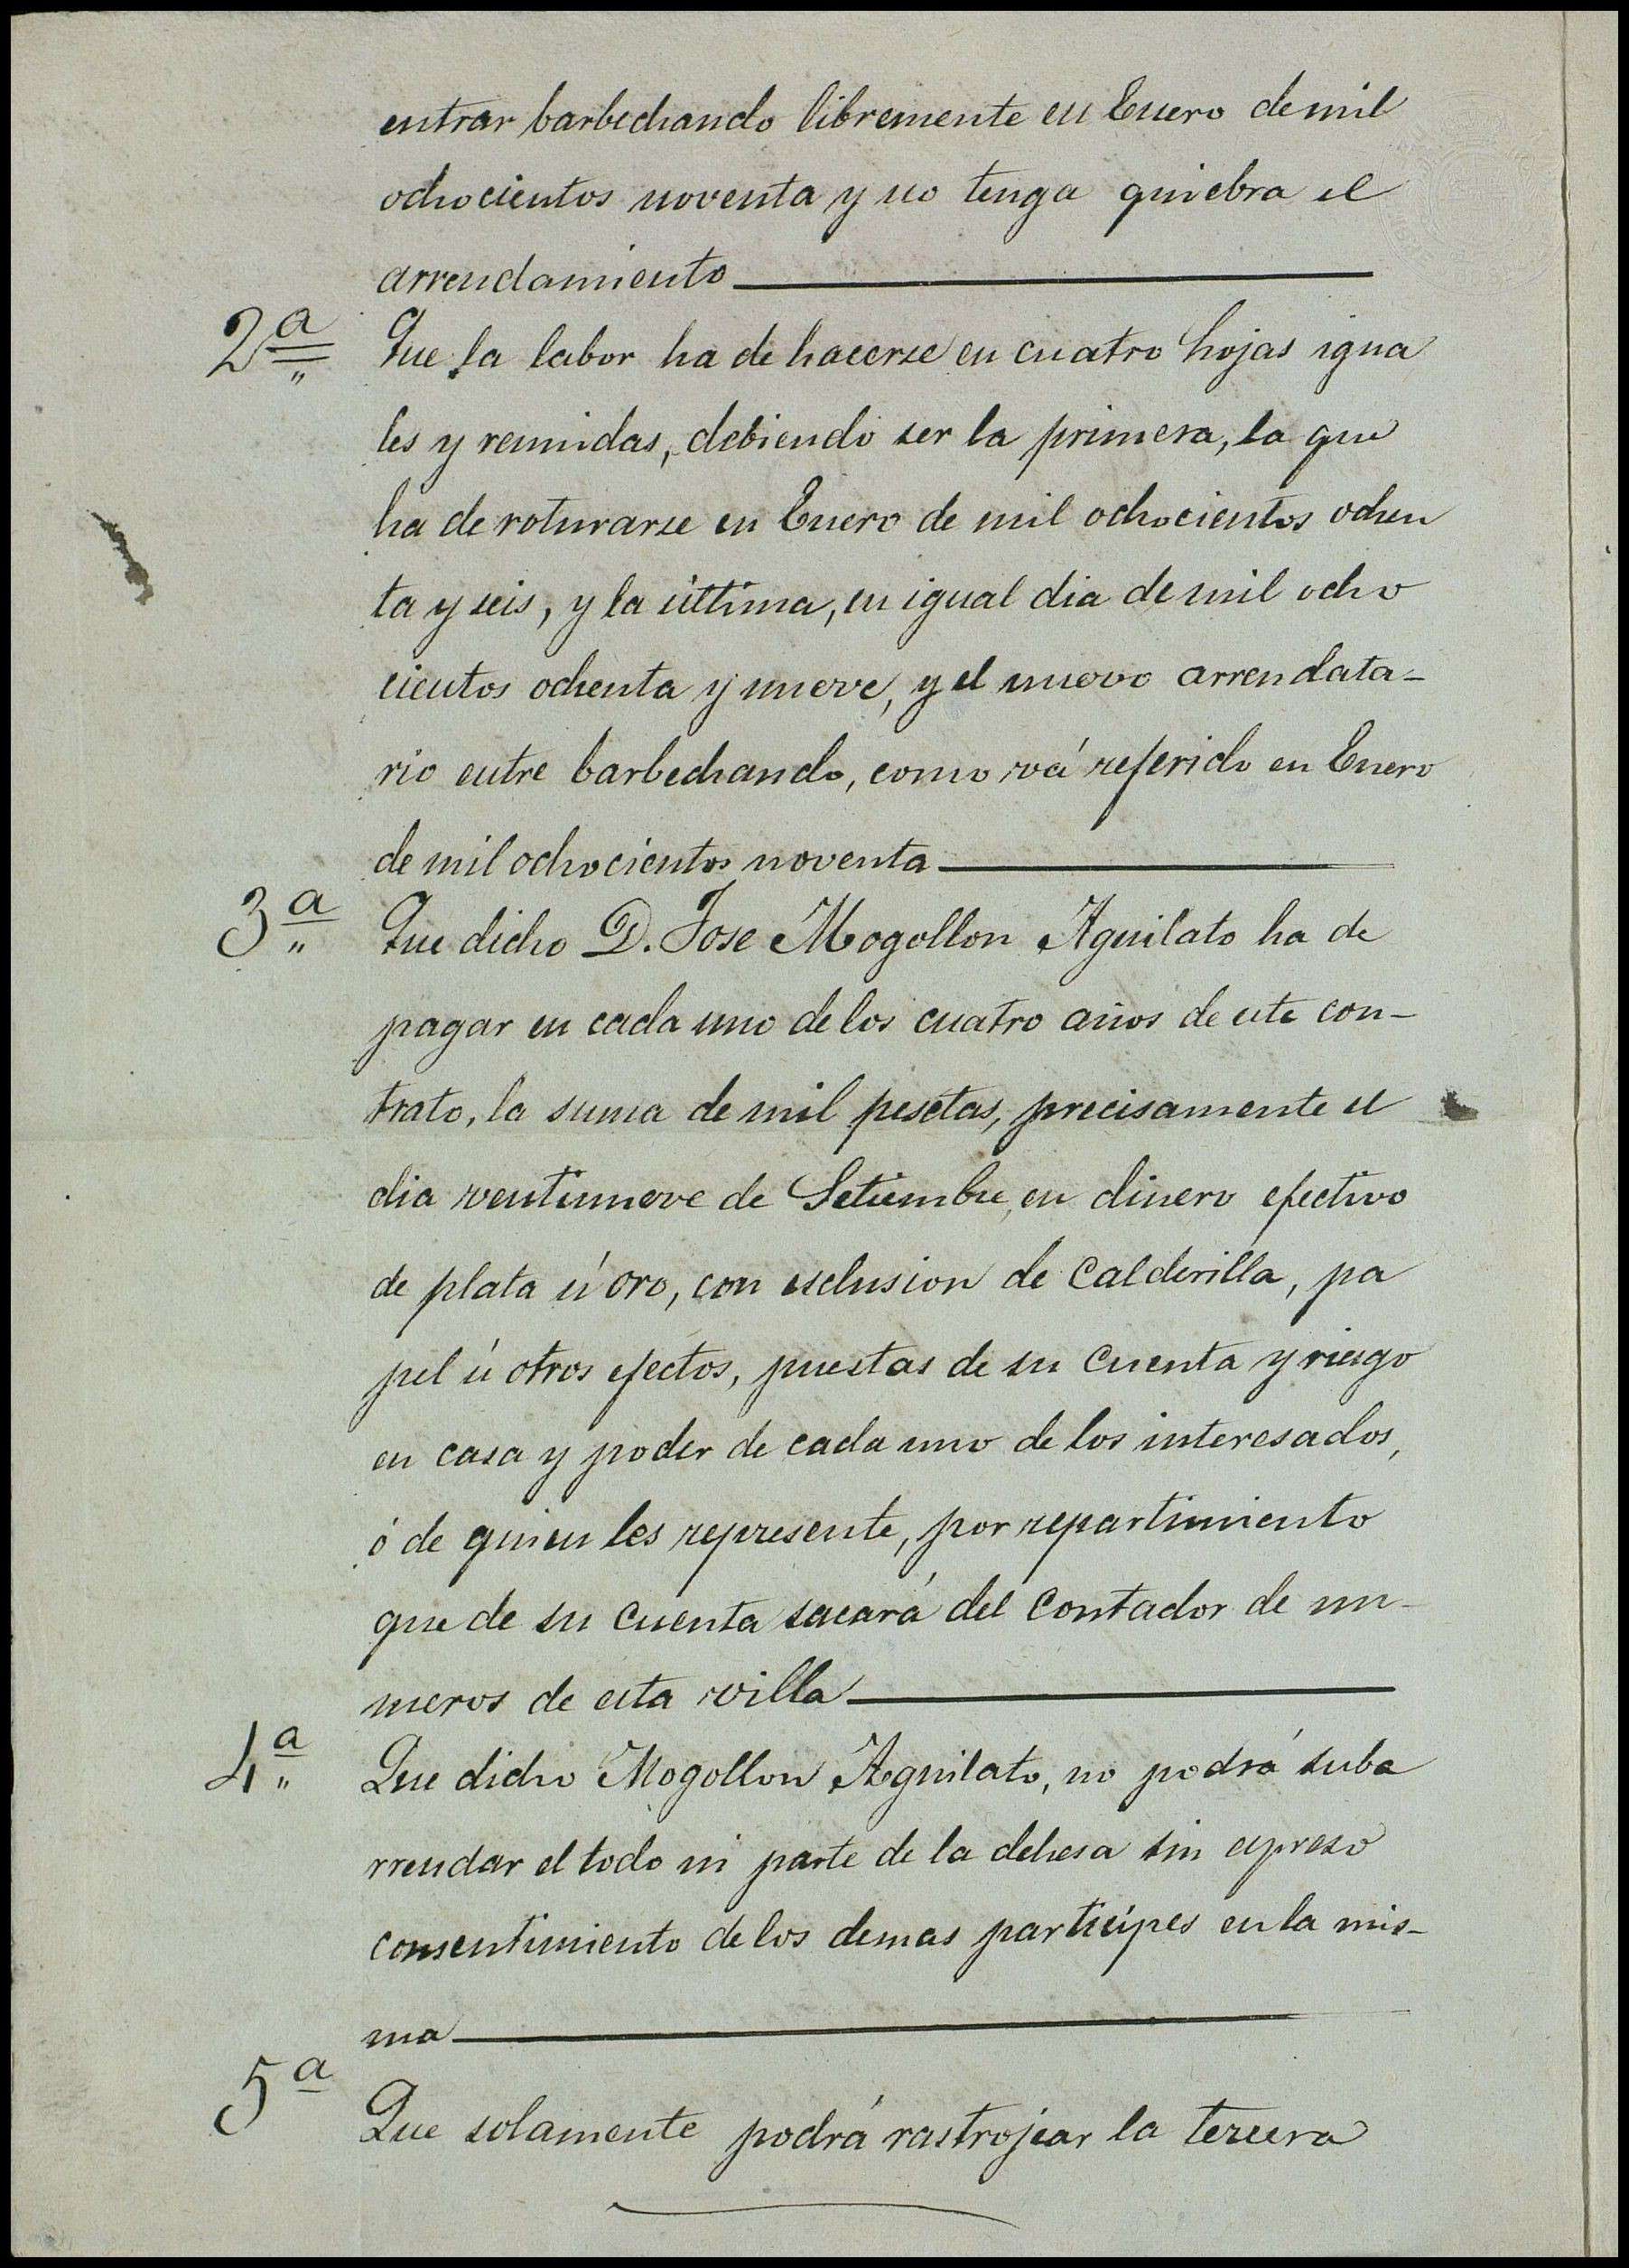 entrar barbechando libremente en Enero de mil
ochocientos noventa y no tenga quiebra el
arrendamiento
2ª Que la labor ha de hacerse en cuatro hojas igua
les y reunidas, debiendo ser la primera, la que
ha de roturarse en Enero de mil ochocientos ochen
ta y seis, y la última, en igual dia de mil ocho
cientos ochenta y nueve, y el nuevo arrendata-
rio entre barbechando, como vá referido en Enero
de mil ochocientos noventa
3ª Que dicho D. Jose Mogollon Aguilato ha de
pagar en cada uno de los cuatro años de este con-
trato, la suma de mil pesetas, precisamente el
dia ventinueve de Setiembre, en dinero efectivo
de plata ú oro, con esclusion de calderilla, pa
pel ú otros efectos, puestas de su cuenta y riesgo
en casa y poder de cada uno de los interesados,
ó de quien les represente, por repartimiento
que de su cuenta sacará del contador de nu-
meros de esta villa
4ª Que dicho Mogollon Aguilato, no podrá suba
rrendar el todo ni parte de la dehesa sin espreso
consentimiento de los demas participes en la mis-
ma
5ª Que solamente podrá rastrojear la tercera